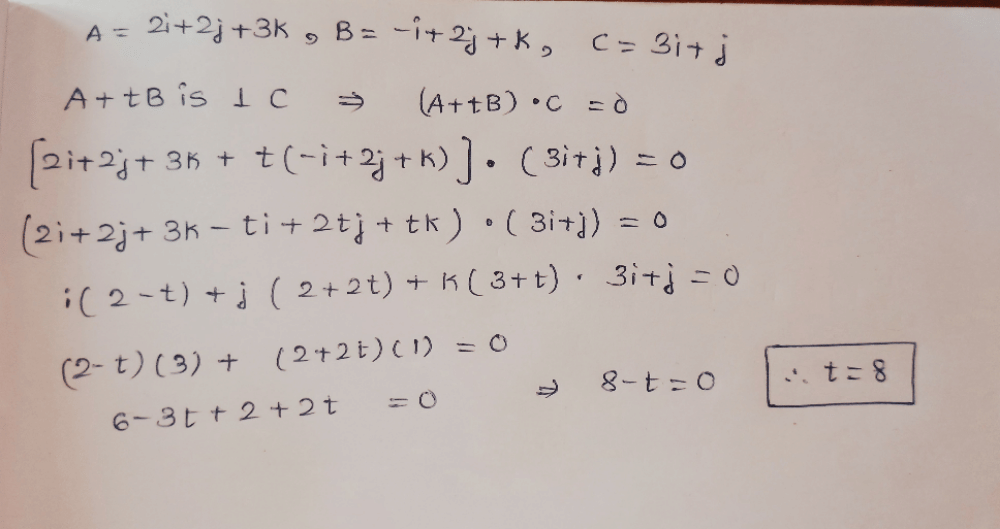 A = 2i+2j+3k , B = -i+2j+k, C = 3i+j
A+tB is ⊥ C ⇒ (A+tB)•C = 0
[2i+2j+3k + t(-i+2j+k)]•(3i+j) = 0
(2i+2j+3k - ti+2tj+tk)•(3i+j) = 0
i(2-t)+j(2+2t)+k(3+t)• 3i+j = 0
(2-t)(3) + (2+2t)(1) = 0
6-3t+2+2t = 0 ⇒ 8-t=0 ∴ t=8